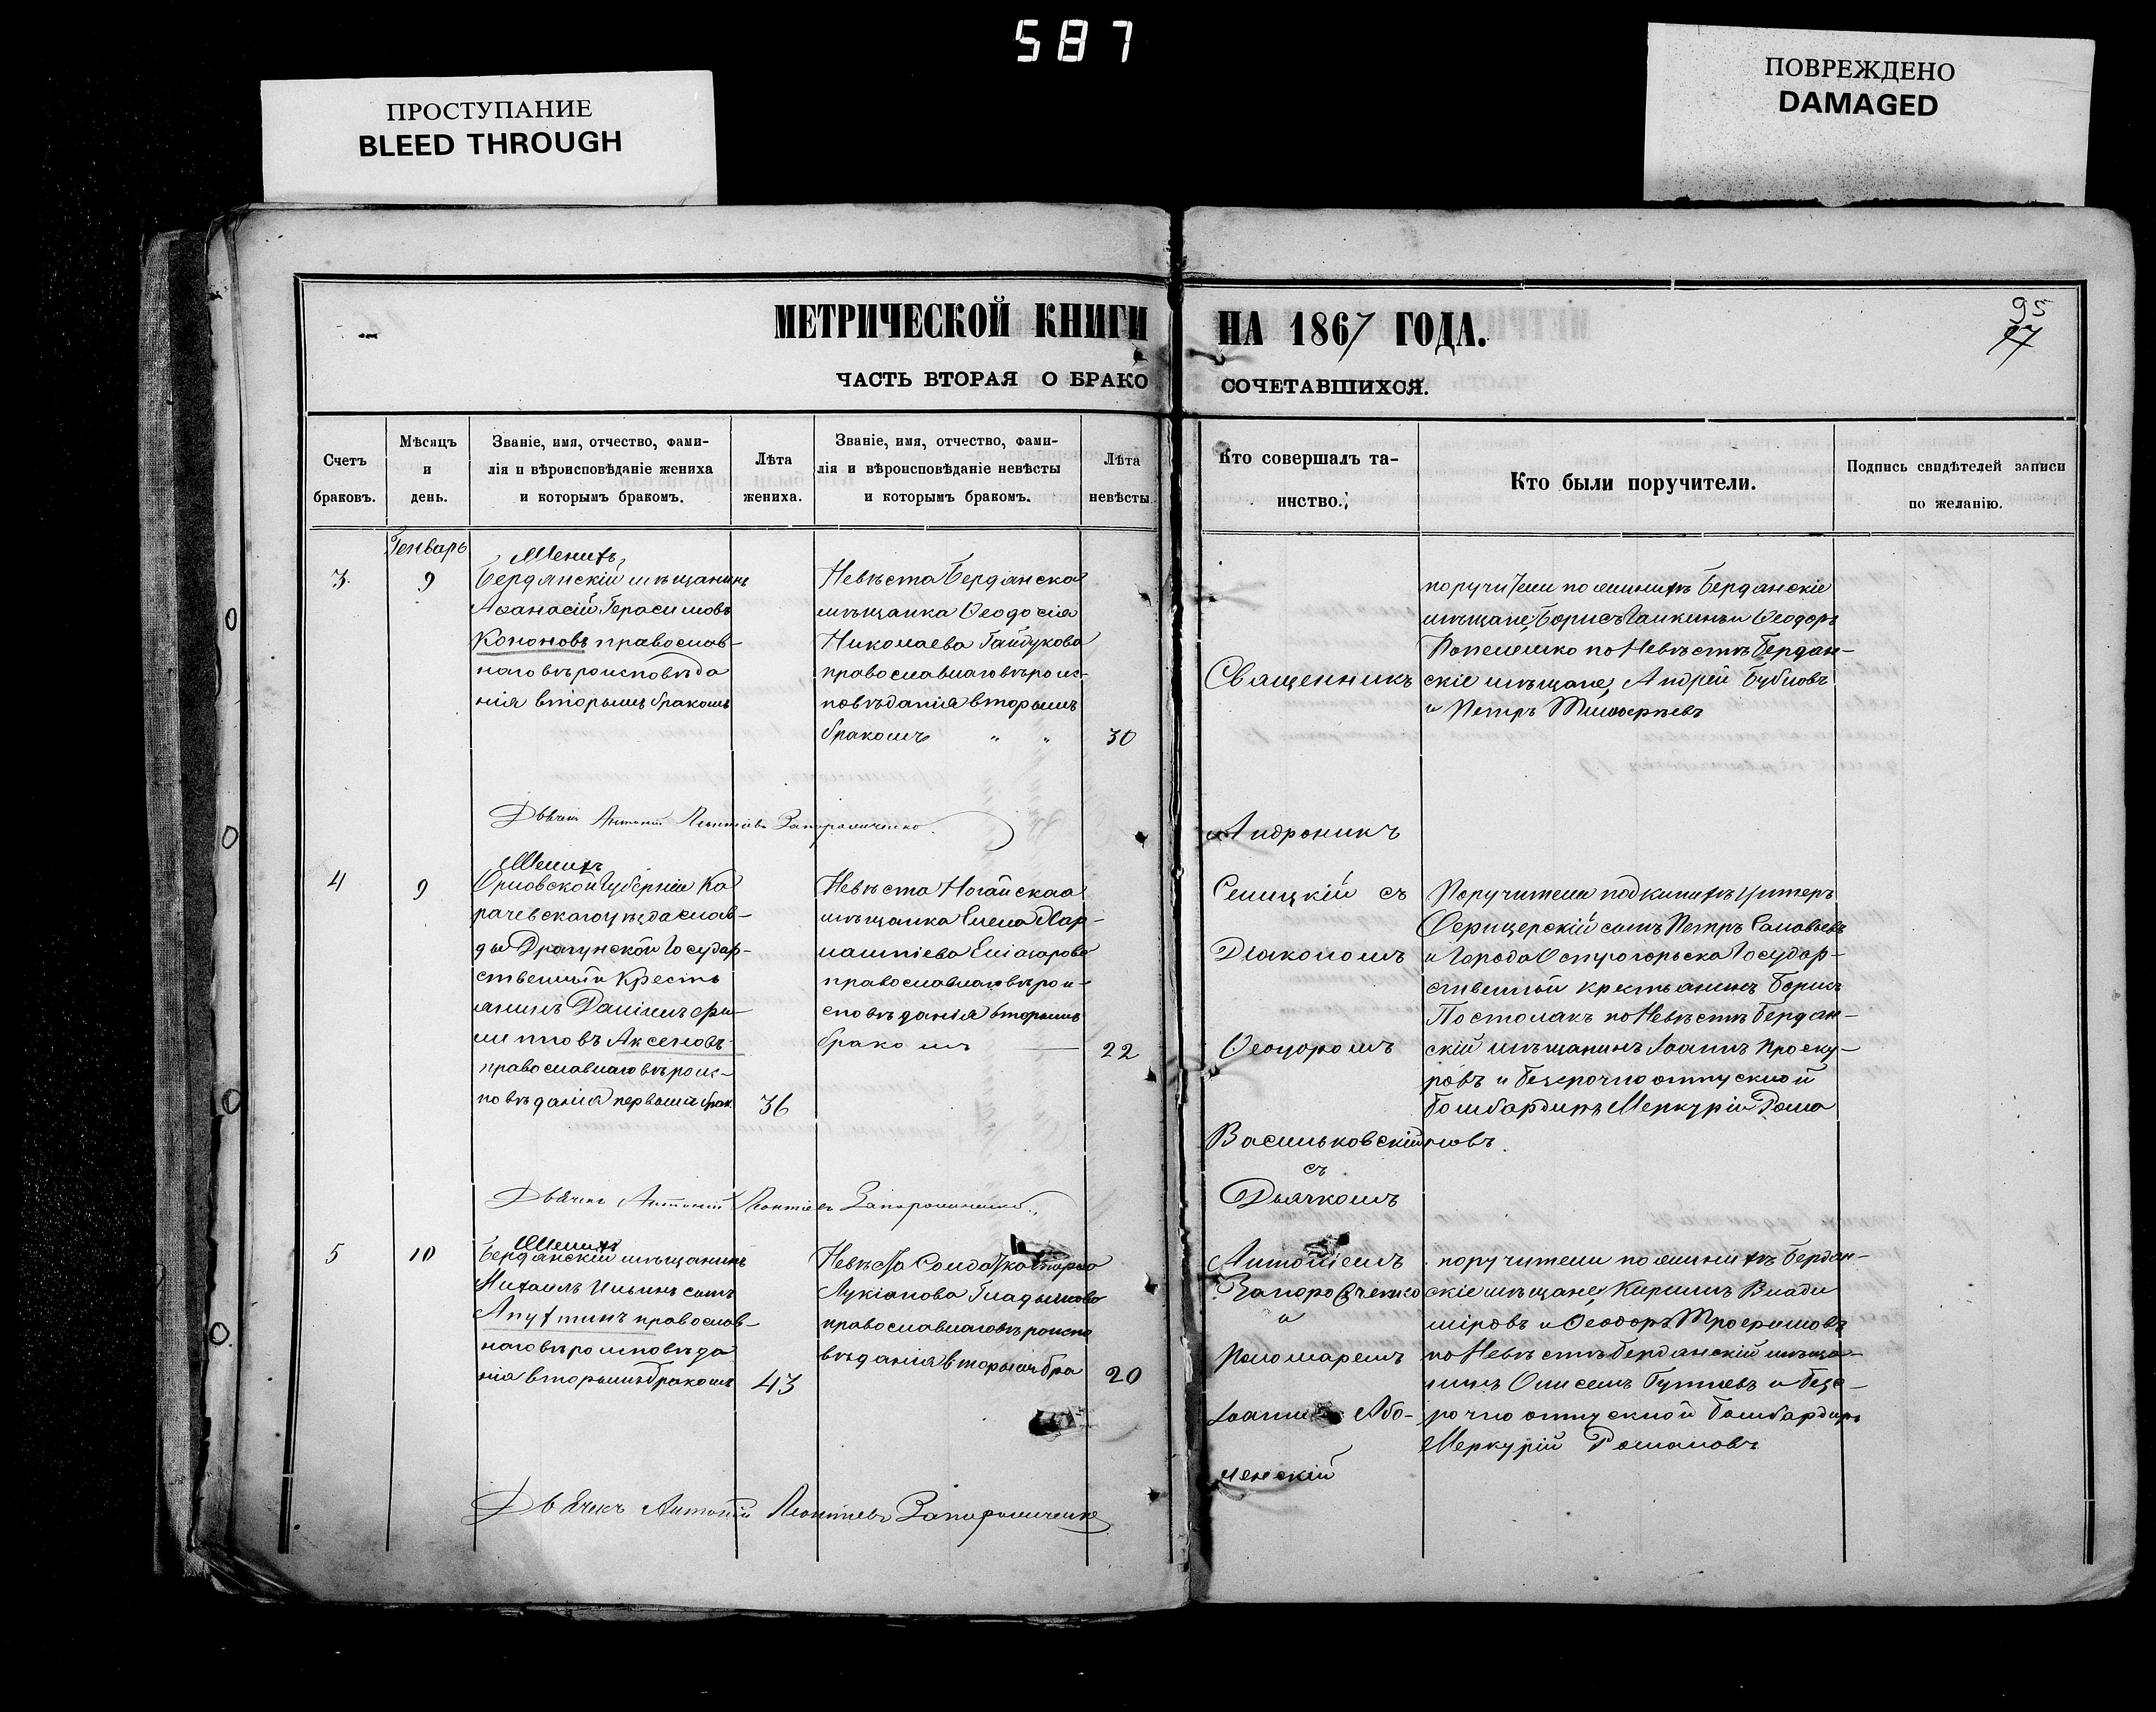 587
ПРОСТУПАНИЕ
BLEED THROUGH
ПОВРЕЖДЕНО
DAMAGED
МЕТРИЧЕСКОЙ КНИГИ НА 1867 ГОДА.
95
ЧАСТЬ ВТОРАЯ О БРАКО СОЧЕТАВШИХСЯ.
Счетъ
браковъ.
Мѣсяцъ
и
день.
Званіе, имя, отчество, фами-
лія и вѣроисповѣданіе жениха
и которымъ бракомъ.
Лѣта
жениха.
Званіе, имя, отчество, фами-
лія и вѣроисповѣданіе невѣсты
и которымъ бракомъ.
Лѣта
невѣсты.
Кто совершалъ та-
инство.
Кто были поручители.
Подпись свидѣтелей записи
по желанію.
Генварь
3
9
Женихъ
Бердянскій мѣщанинъ
Аѳанасій Герасимовъ
Кононовъ православ-
наго вѣроисповѣда
нія вторымъ бракомъ
Невѣста Бердянская
мѣщанка Ѳеодосія
Николаева Гайдукова
православнаго вѣроис-
повѣданія вторымъ
бракомъ " "
30
поручители по женихѣ Бердянскіе
мѣщане, Борисъ и Ѳеодоръ
по Невѣстѣ Бердян-
скіе мѣщане, Андрей Бубновъ
и Петръ Тимоѳѣевъ
Дьячекъ Антоній Леонтіевъ Запорожченко
4
9
Женихъ
Орловской Губерніи Ка
рачевскаго уѣзда слав-
ды Драгунской Государ-
ственный Кресть
янинъ Даніилъ Фи
липповъ Аксеновъ
православнаго вѣроис-
повѣданія первымъ брак.
36
Невѣста Ногайская
мѣщанка Елена Хар-
лампіева
православнаго вѣрои-
сповѣданія вторымъ
бракомъ
22
Поручители под женихѣ унтеръ
Офицерскій сынъ Петръ Соловьевъ
и Города Острогорьска Государ-
ственный крестьянинъ Борисъ
Постолакъ по Невѣстѣ Бердян-
скій мѣщанинъ Іоаннъ Проску-
ровъ и безсрочно отпускной
бомбардиръ Меркурій Рома
новъ.
Дьячекъ Антоній Леонтіевъ Запорожченко
5
10
Женихъ
Бердянскій мѣщанинъ
Михаилъ Ильинъ сынъ
Апухтинъ православ-
наго вѣроисповѣда
нія вторымъ бракомъ
43
Невѣста Солдатка Марѳа
Лукіанова Гладышова
православнаго вѣроиспо
вѣданія вторымъ бра
20
поручители по женихѣ Бердян-
скіе мѣщане, Кирилъ Влади
міровъ и Ѳеодоръ Трофимовъ
по Невѣстѣ Бердянскій мѣща-
нинъ и безс-
рочно отпускной бомбардиръ
Меркурій Романовъ
Дьячекъ Антоній Леонтіевъ Запорожченко
Священникъ
Андроникъ
Селицкій съ
Діакономъ
Ѳеодоромъ
Васильковскій
съ
Дьячкомъ
Антоніемъ
Запорожченко
и
Пономаремъ